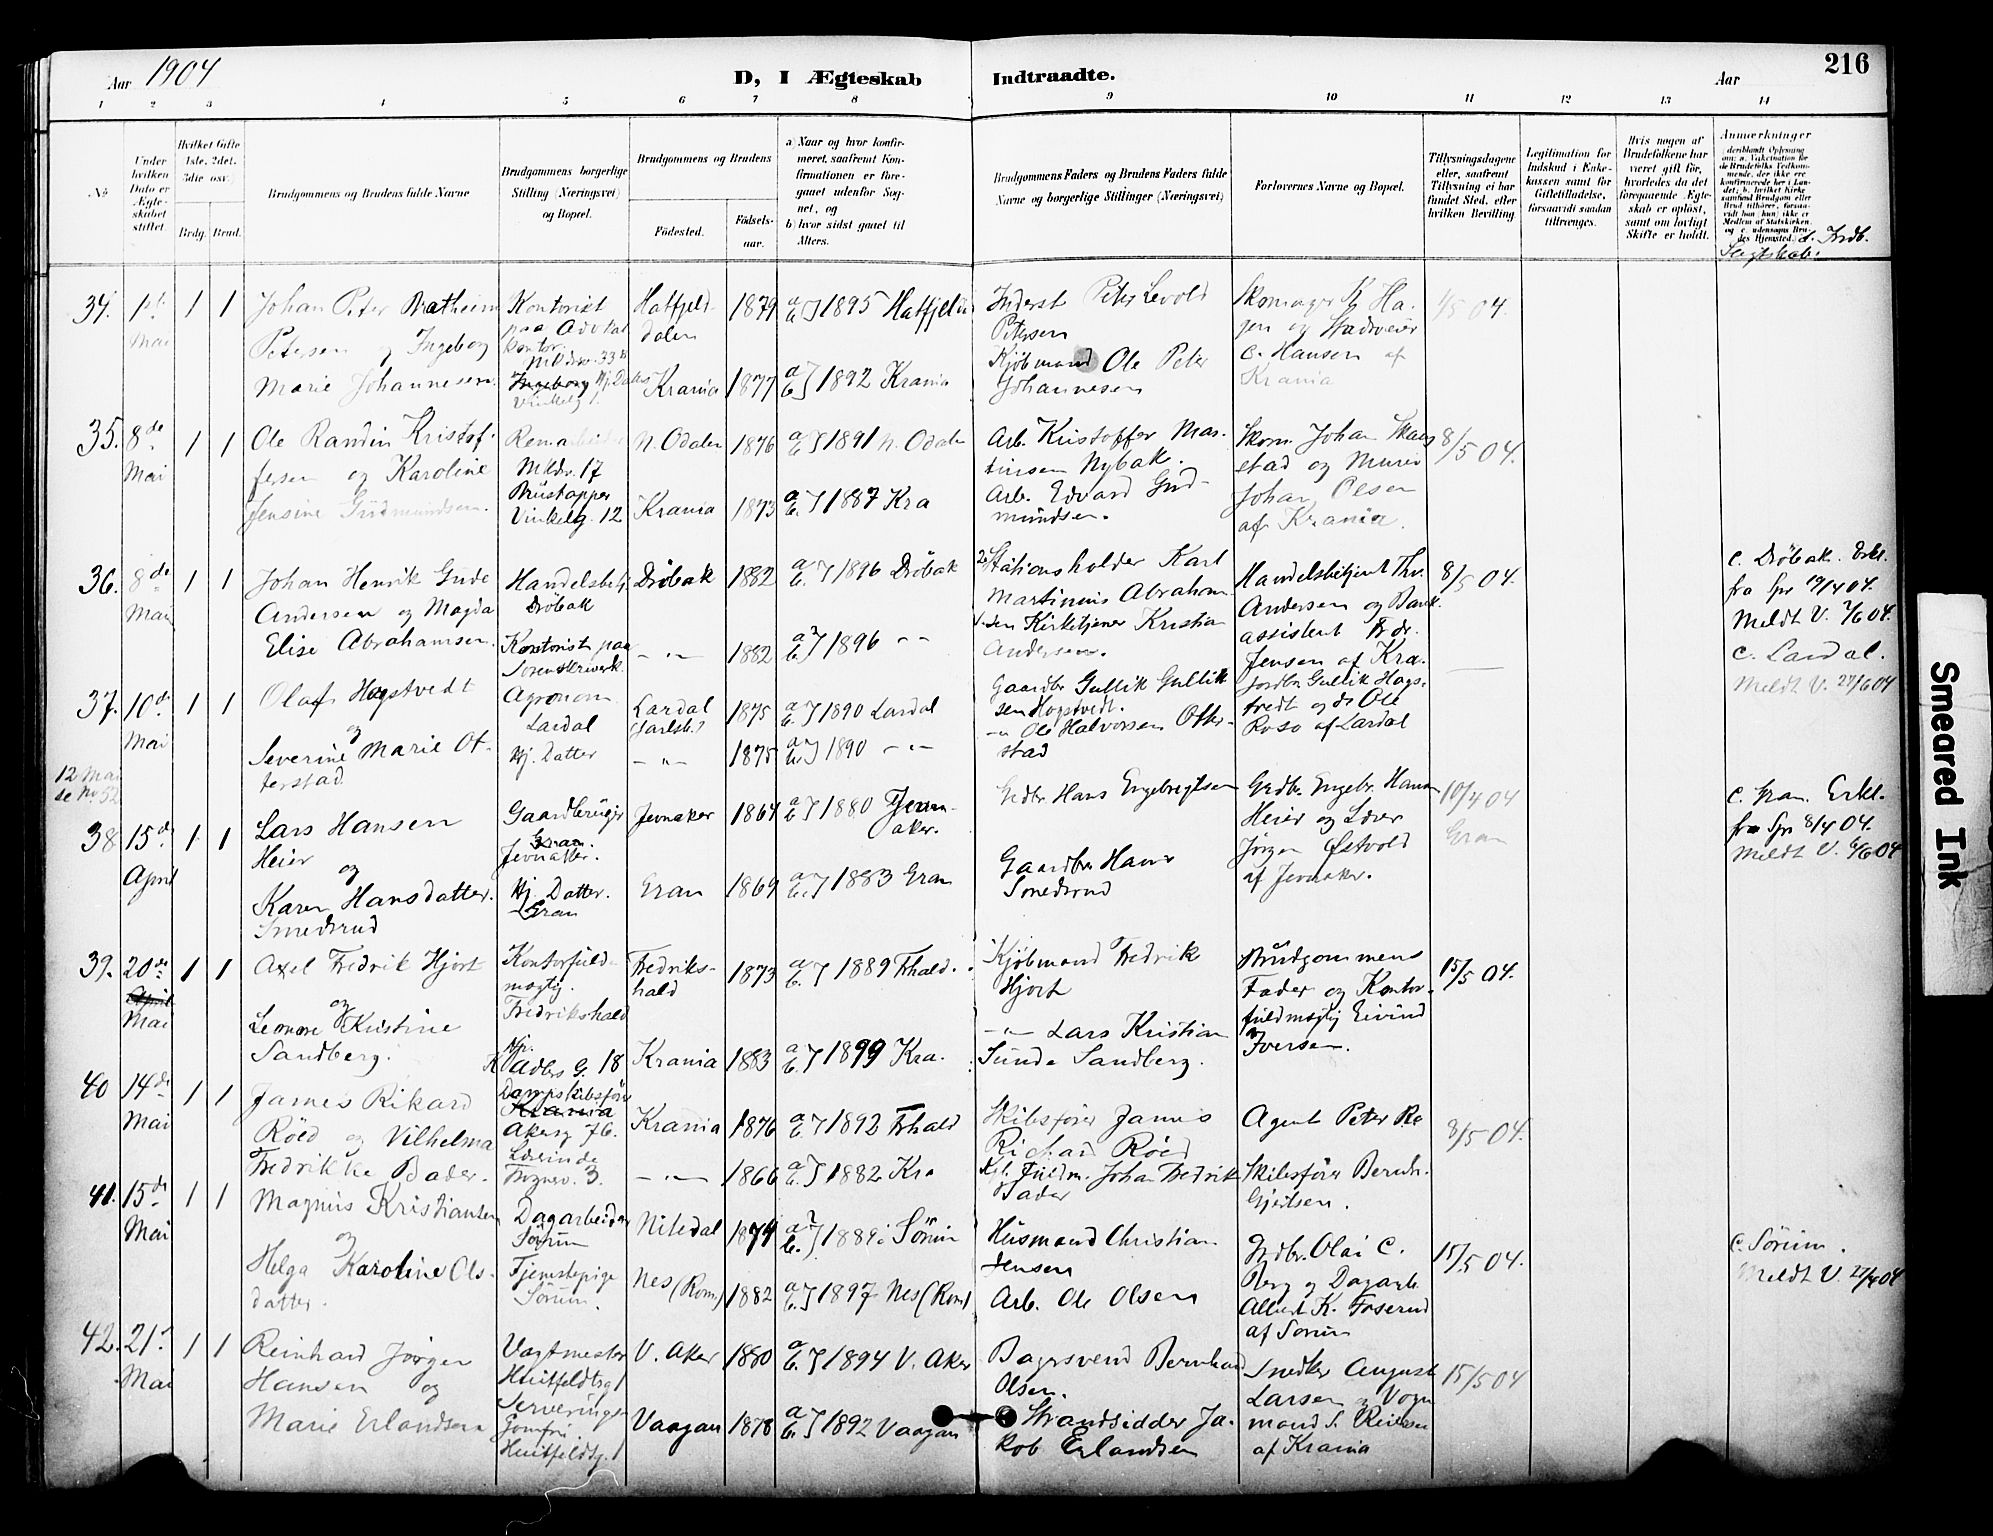 Aar 1904
D, I Ægteskab
Indtraadte.
Aar
216
1 2 3 4 5 6 7 8 9 10 11 12 13 14
No
Under hvilken Dato er Ægteskabet stiftet.
Hvilket Gifte 1ste, 2det, 3die osv.)
Brdg. Brud.
Brudgommens og Brudens fulde Navne
Brudgommens borgerlige Stilling (Næringsvei) og Bopæl.
Brudgommens og Brudens
Födested.
Födselsaar.
a) Naar og hvor konfirmeret, saafremt Konfirmationen er foregaaet udenfor Sognet, og
b) hvor sidst gaaet til Alters.
Brudgommens Faders og Brudens Faders fulde Navne og borgerlige Stillinger (Næringsvei)
Forlovernes Navne og Bopæl.
Tillysningsdagene eller, saafremt Tillysning ei har fundet Sted, efter hvilken Bevilling.
Legitimation for Indskud i Enkekassen samt for Giftetilladelse, forsaavidt saadan tiltrænges.
Hvis nogen af Brudefolkene har været gift för, hvorledes da det foregaaende Ægteskab er oplöst, samt om lovligt Skifte er holdt.
Anmærkninger
Slegtskab.
34. 1ste Mai 1 1
Johan Peter Bratheim
Petersen og Ingeborg
Marie Johannesen.
Kontorist
paa Advokat
kontor.
Vinkelg 1.
Hatfjeld-
dalen
Krania
1879
1877
a b} 1895 Hatfjeld
a b} 1892 Krania
Inderst Peter Levold
Petersen
Kjöbmand Ole Peter
Johannesen
Skomager K Ha-
gen og
C. Hansen af
Krania
1/5 04.
35. 8de Mai 1 1
Ole Randin Kristof-
fersen og Karoline
Jensine Gudmundsen.
Mkdv. 17
Vinkelg. 12
N. Odalen
Krania
1876
1873
a b} 1891 N. Odalen
a b} 1887 Kra
Arb. Kristoffer Mar-
tinsen Nybak.
Arb. Edvard Gud-
mundsen.
Skom. Johan Skare-
stad og Murer
Johan Olsen
af Krania.
8/5 04.
36. 8de Mai 1 1
Johan Henrik Gude
Andersen og Magda
Elise Abrahamsen.
Handelsbetj.
Dröbak
Kontorist paa
Sorenskriverk.
Dröbak
— " —
1882
1882
a b} 1896 Dröbak
a b} 1896 - -
Stationsholder Karl
Martinius Abraham
sen Kirketjener Kristian
Andersen.
Handelsbetjent Thv.
Andersen og Bank
assistent Fr dr.
Jensen af Kra.
8/5 04.
C. Dröbak. Erkl.
fra Spr 19/4 04.
Meldt V. 7/6 04.
37. 10de Mai 1 1
Olaf Hogstvedt
og
Severine Marie Ot-
terstad.
Agronom
Lardal
Hj. Datter
Lardal
Jarlsb.
— " —
1875
1875
a b} 1890 Lardal
a b} 1890 - " -
Gaardbr Gullik Gullik
sen Hogstvedt.
— " Ole Halvorsen Otter-
stad
Jordbr Gullik Hogs-
tvedt og do Ole
Roso af Lardal
—
C. Lardal.
Meldt V. 27/6 04
12 Mai
se No 52
38 15de April 1 1
Lars Hansen
Heier
og
Karen Hansdatter.
Smedsrud
Gaardbruger
Gran.
Jevnaker.
Hj. Datter.
Gran
Jevnaker
Gran
1864
1869
a b} 1880 Jevn-
aker.
a b} 1883 Gran
Grdbr. Hans Engebregtsen
Gaardbr Hans
Smedsrud
Grdbr. Engebr. Hansen
Heier og Lærer
Jörgen Østvold
af Jevnaker.
10/4 04
Gran
C. Gran. Erkl.
fra Spr 8/4 04.
Meldt V. 6/6 04
39. 20de April Mai 1 1
Axel Fredrik Hjort
og
Leonore Kristine
Sandberg.
Kontorfuld-
mægtig.
Fredrikshald
18
Fredriks-
hald
Krania
1873
1883
a b} 1889 Frhald.
a b} 1899 Kra.
Kjöbmand Fredrik
Hjort
— " — Lars Kristian
Sunde Sandberg.
Brudgommens
Fader og Kontor-
fuldmægtig Eivind
Iversen.
15/5 04.
40 14de Mai 1 1
James Rikard
Röed og Vilhelma
Fredrikke Bader.
Dampskibsförer
Krania
Akersg 76.
Lærerinde
Frognerv. 3.
Krania
— " —
1876
1866
a b} 1892 Frhald
a b} 1882 Kra
Skibsförer James
Richard Röed
Fuldm. Johan Fredrik
Bader
Agent Peter Ro
Skibsförer Bernh.
Gjertsen.
8/5 04.
41. 15de Mai 1 1
Magnus Kristiansen
og
Helga Karoline Ols-
datter.
Dagarbeider
Sörum
Tjenestepige
Sörum.
Nitedal
Nes (Rom)
1874
1882
a b} 1889 i Sörum
a b} 1897 Nes (Rom)
Husmand Christian
Jensen
Arb. Ole Olsen
Grdbr. Olai C.
Berg og Dagarb.
Albert K. Foserud
af Sörum
15/5 04.
C. Sörum.
Meldt V. 27/6 04
42. 21 Mai 1 1
Reinhard Jörgen
Hansen og
Marie Erlandsen
Vagtmester
Huitfeldtsg 1
Serverings-
jomfru.
Huitfeldtsg. 1
V. Aker
Vaagan
1880
1878
a b} 1894 V. Aker
a b} 1892 Vaagan
Bagersvend Bernhard
Olsen.
Strandsidder Ja-
kob Erlandsen
Snedker August
Larsen og Vogn
mand S. Reiersen
af Krania
15/5 04
Smeared Ink